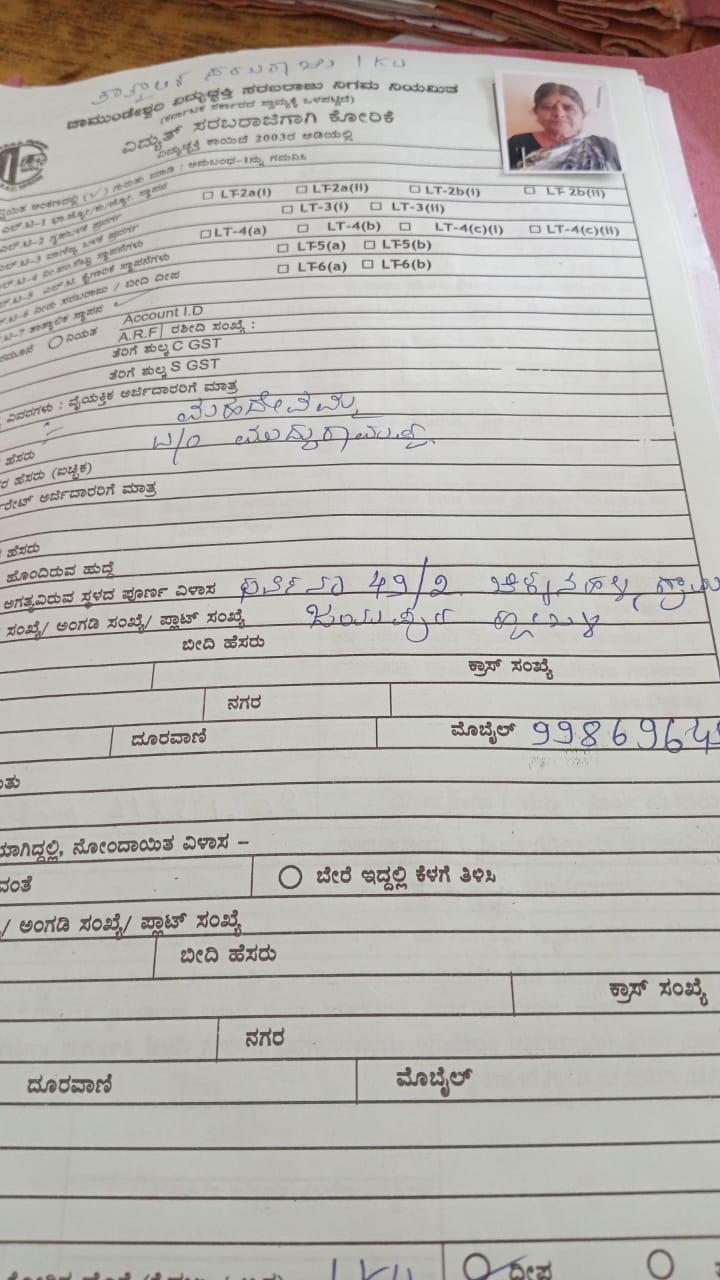 ತಾತ್ಕಾಲಿಕ 1 KW
ಚಾಮುಂಡೇಶ್ವರಿ ವಿದ್ಯುಚ್ಛಕ್ತಿ ಸರಬರಾಜು ನಿಗಮ ನಿಯಮಿತ
(ಕರ್ನಾಟಕ ಸರ್ಕಾರದ ಸ್ವಾಮ್ಯಕ್ಕೆ ಒಳಪಟ್ಟಿದೆ)
ವಿದ್ಯುತ್ ಸರಬರಾಜಿಗಾಗಿ ಕೋರಿಕೆ
ವಿದ್ಯುಚ್ಛಕ್ತಿ ಕಾಯಿದೆ 2003ರ ಅಡಿಯಲ್ಲಿ
(√) ಗುರುತು ಮಾಡಿ : ಅನುಬಂಧ-1ನ್ನು ಗಮನಿಸಿ
LT-2a(i) LT-2a(ii) LT-2b(i) LT-2b(ii)
LT-3(i) LT-3(ii)
LT-4(a) LT-4(b) LT-4(c)(I) LT-4(c)(II)
LT-5(a) LT-5(b)
LT-6(a) LT-6(b)
ನೀರು ಸರಬರಾಜು / ಬೀದಿ ದೀಪ
ತಾತ್ಕಾಲಿಕ ಸ್ಥಾಪನ
ನಿಯತ Account I.D
A.R.F ರಶೀದಿ ಸಂಖ್ಯೆ :
ತೆರಿಗೆ ಶುಲ್ಕ C GST
ತೆರಿಗೆ ಶುಲ್ಕ S GST
ವಿವರಗಳು : ವೈಯಕ್ತಿಕ ಅರ್ಜಿದಾರರಿಗೆ ಮಾತ್ರ
ಮಹದೇವಮ್ಮ
ಹೆಸರು W/o
ರ ಹೆಸರು (ಐಚ್ಛಿಕ)
ರೇಟ್ ಅರ್ಜಿದಾರರಿಗೆ ಮಾತ್ರ
ಹೆಸರು
ಹೊಂದಿರುವ ಹುದ್ದೆ
ಅಗತ್ಯವಿರುವ ಸ್ಥಳದ ಪೂರ್ಣ ವಿಳಾಸ 49/2
ಸಂಖ್ಯೆ/ ಅಂಗಡಿ ಸಂಖ್ಯೆ/ ಪ್ಲಾಟ್ ಸಂಖ್ಯೆ ಜಯಪುರ ಹೋಬಳಿ
ಬೀದಿ ಹೆಸರು
ಕ್ರಾಸ್ ಸಂಖ್ಯೆ
ನಗರ
ದೂರವಾಣಿ ಮೊಬೈಲ್ 99869645
ತು
ಯಾಗಿದ್ದಲ್ಲಿ, ನೋಂದಾಯಿತ ವಿಳಾಸ –
ವಂತೆ ಬೇರೆ ಇದ್ದಲ್ಲಿ ಕೆಳಗೆ ತಿಳಿಸಿ
/ ಅಂಗಡಿ ಸಂಖ್ಯೆ/ ಪ್ಲಾಟ್ ಸಂಖ್ಯೆ
ಬೀದಿ ಹೆಸರು
ಕ್ರಾಸ್ ಸಂಖ್ಯೆ
ನಗರ
ದೂರವಾಣಿ ಮೊಬೈಲ್